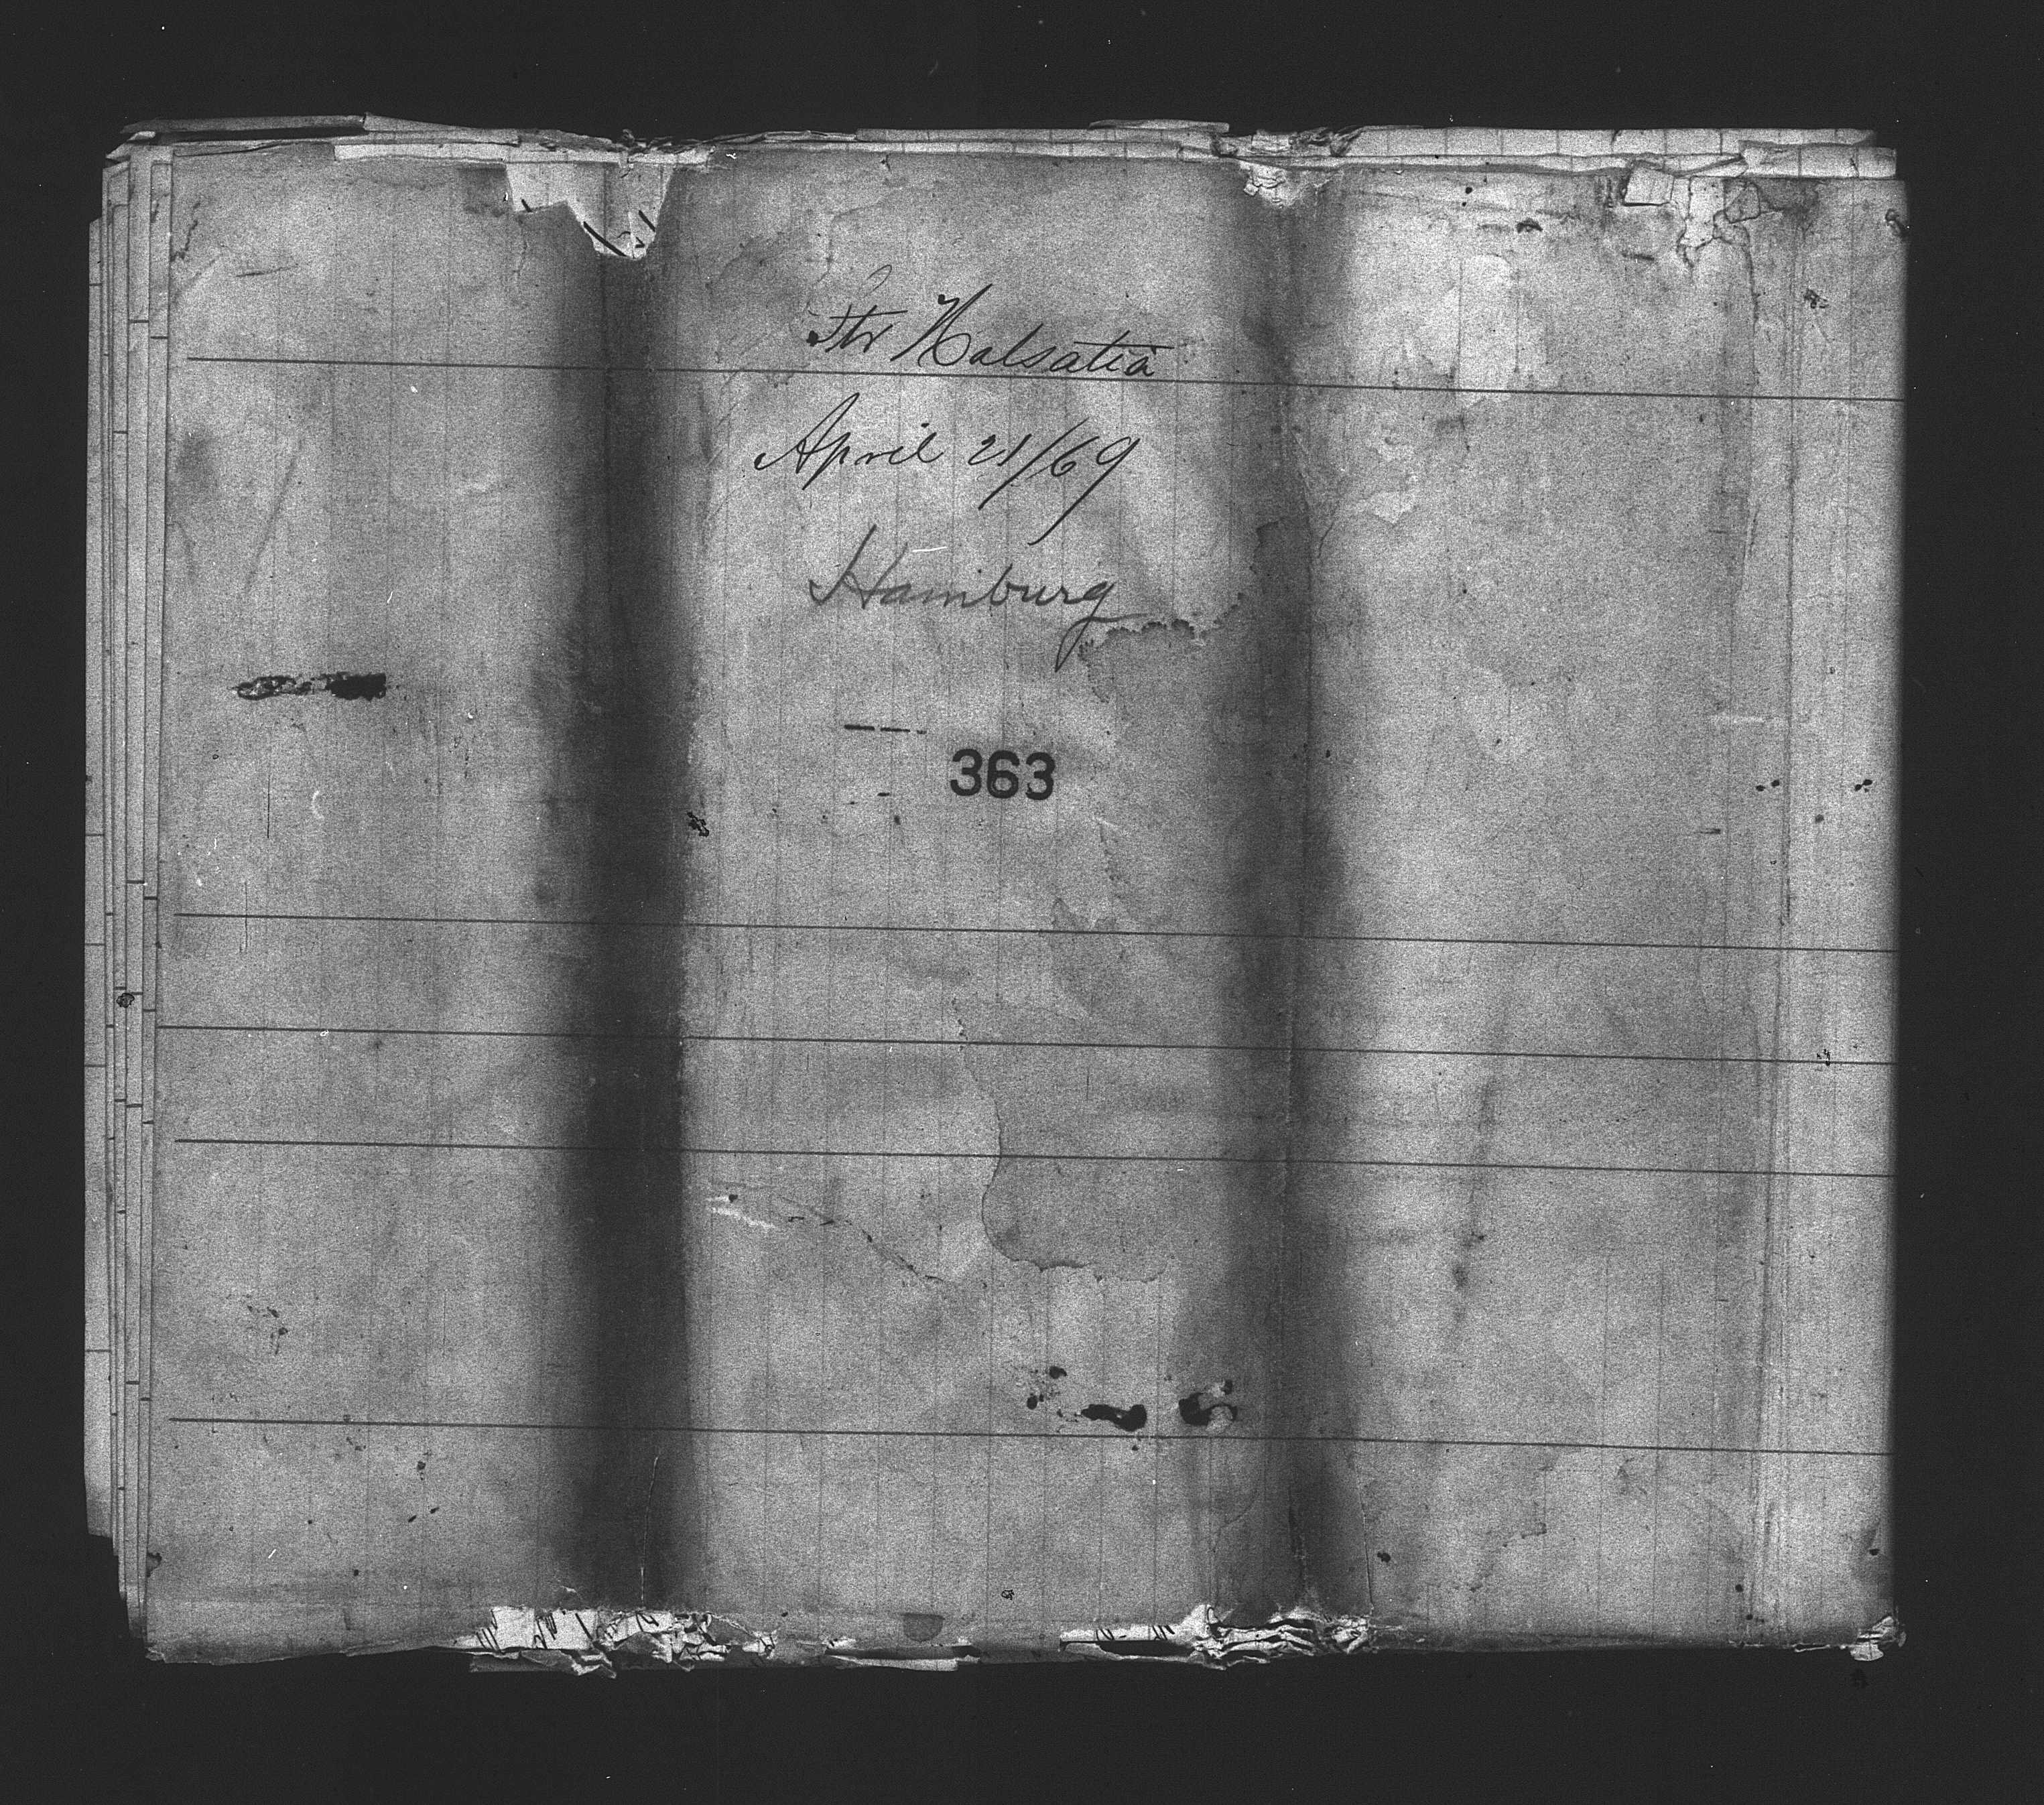 Str Holsatia
April 21/69
Hamburg
363